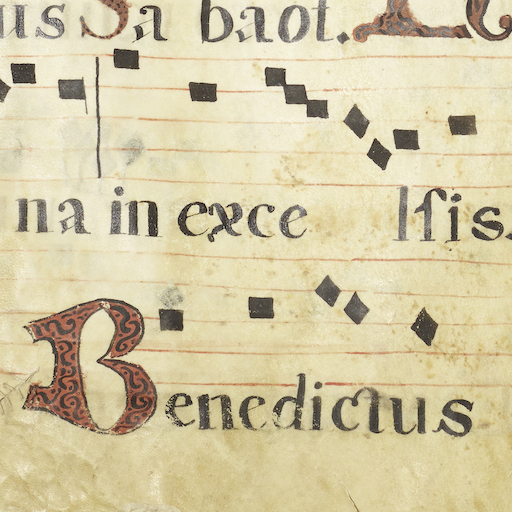 us Sa baot.
na in exce lſis.
Benedictus